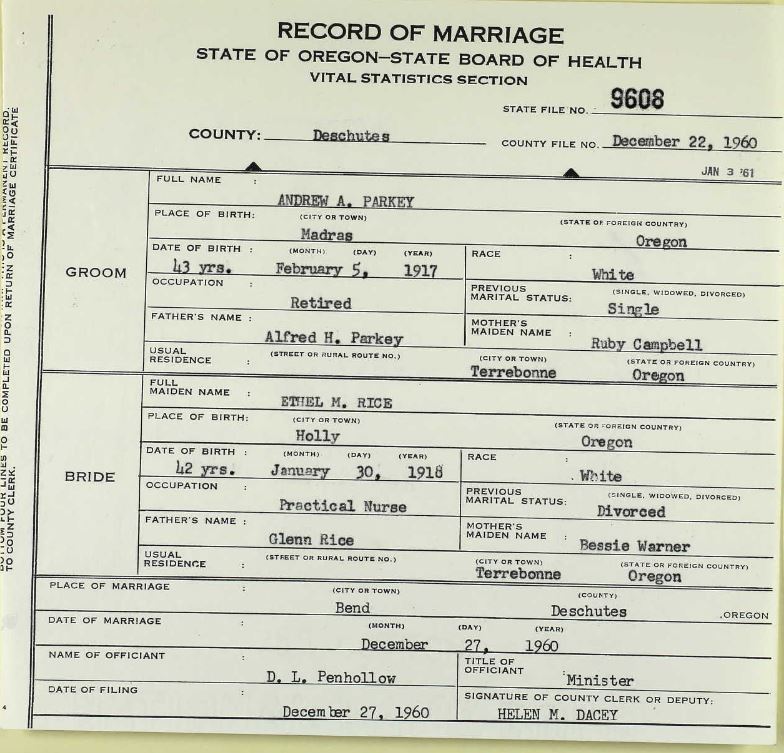 RECORD OF MARRIAGE
STATE OF OREGON—STATE BOARD OF HEALTH
VITAL STATISTICS SECTION
STATE FILE NO. 9608
COUNTY: Deschutes COUNTY FILE NO. December 22, 1960
JAN 3 '61
GROOM
FULL NAME : ANDREW A. PARKEY
PLACE OF BIRTH: (CITY OR TOWN) (STATE OR FOREIGN COUNTRY)
Madras Oregon
DATE OF BIRTH : (MONTH) (DAY) (YEAR) RACE :
43 yrs. February 5, 1917 White
OCCUPATION : PREVIOUS MARITAL STATUS: (SINGLE, WIDOWED, DIVORCED)
Retired Single
FATHER'S NAME : MOTHER'S MAIDEN NAME :
Alfred H. Parkey Ruby Campbell
USUAL RESIDENCE : (STREET OR RURAL ROUTE NO.) (CITY OR TOWN) (STATE OR FOREIGN COUNTRY)
Terrebonne Oregon
BRIDE
FULL MAIDEN NAME : ETHEL M. RICE
PLACE OF BIRTH: (CITY OR TOWN) (STATE OR FOREIGN COUNTRY)
Holly Oregon
DATE OF BIRTH : (MONTH) (DAY) (YEAR) RACE :
42 yrs. January 30, 1918 White
OCCUPATION : PREVIOUS MARITAL STATUS: (SINGLE, WIDOWED, DIVORCED)
Practical Nurse Divorced
FATHER'S NAME : MOTHER'S MAIDEN NAME :
Glenn Rice Bessie Warner
USUAL RESIDENCE : (STREET OR RURAL ROUTE NO.) (CITY OR TOWN) (STATE OR FOREIGN COUNTRY)
Terrebonne Oregon
PLACE OF MARRIAGE : (CITY OR TOWN) (COUNTY)
Bend Deschutes ,OREGON
DATE OF MARRIAGE : (MONTH) (DAY) (YEAR)
December 27, 1960
NAME OF OFFICIANT : TITLE OF OFFICIANT :
D. L. Penhollow Minister
DATE OF FILING : SIGNATURE OF COUNTY CLERK OR DEPUTY:
December 27, 1960 HELEN M. DACEY
4
PERMANENT RECORD.
BOTTOM FOUR LINES TO BE COMPLETED UPON RETURN OF MARRIAGE CERTIFICATE
TO COUNTY CLERK.